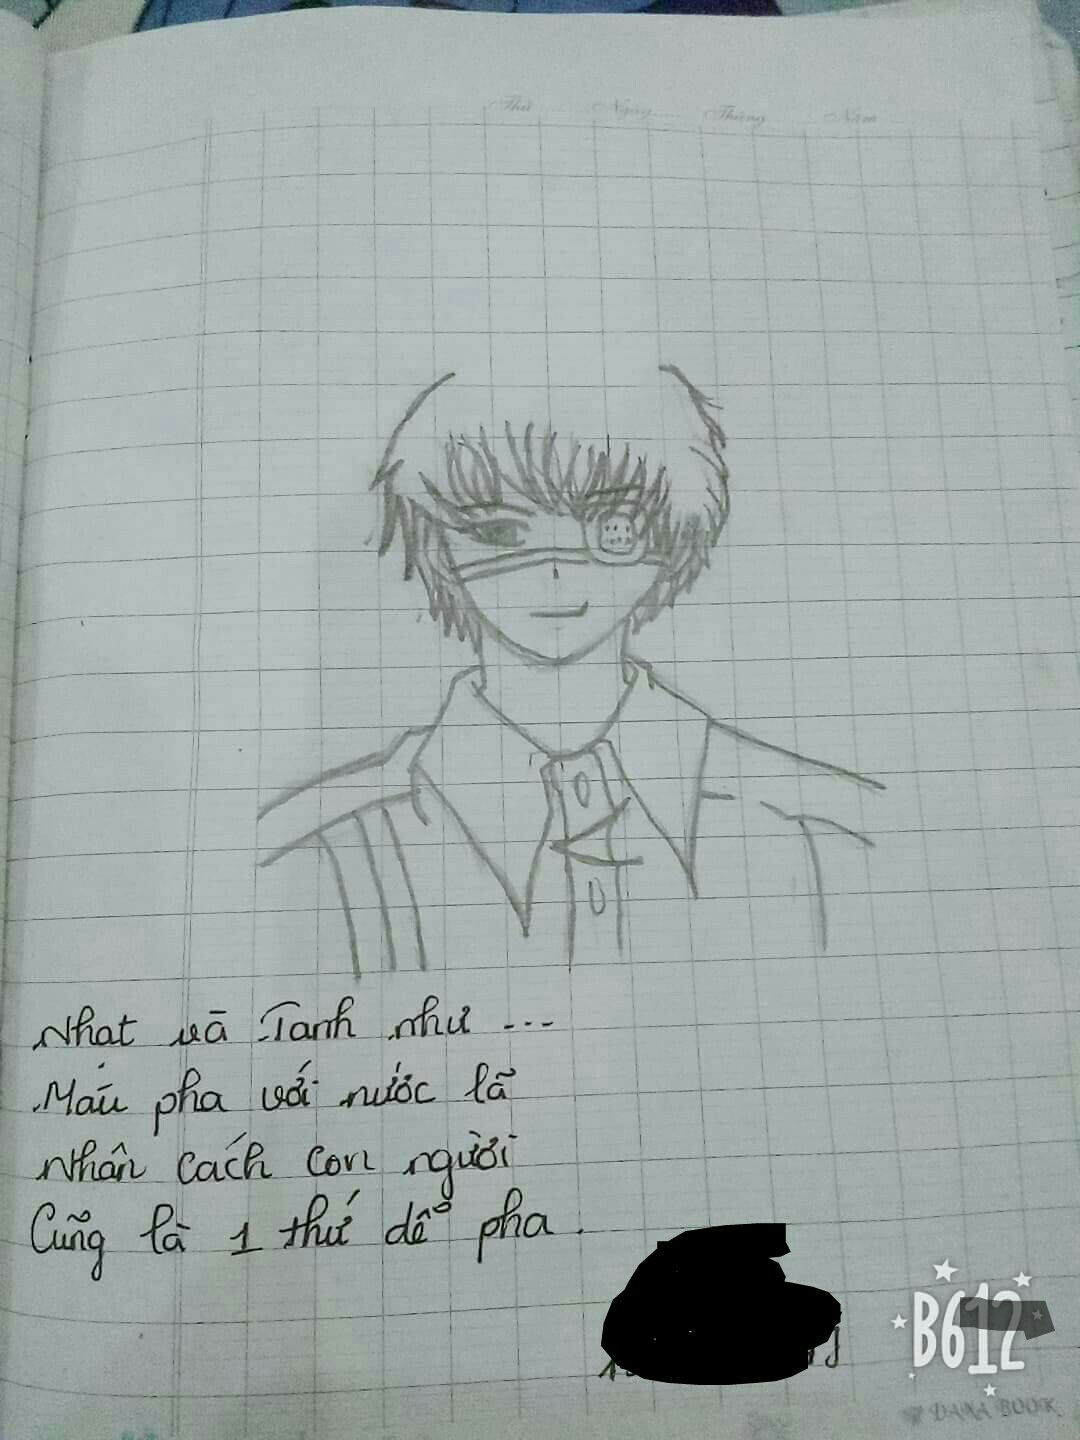 Thứ Ngày Tháng Năm
Nhạt và Tanh như ...
Máu pha với nước lã
Nhân cách con người
Cũng là 1 thứ dễ pha.
B612
DANA BOOK